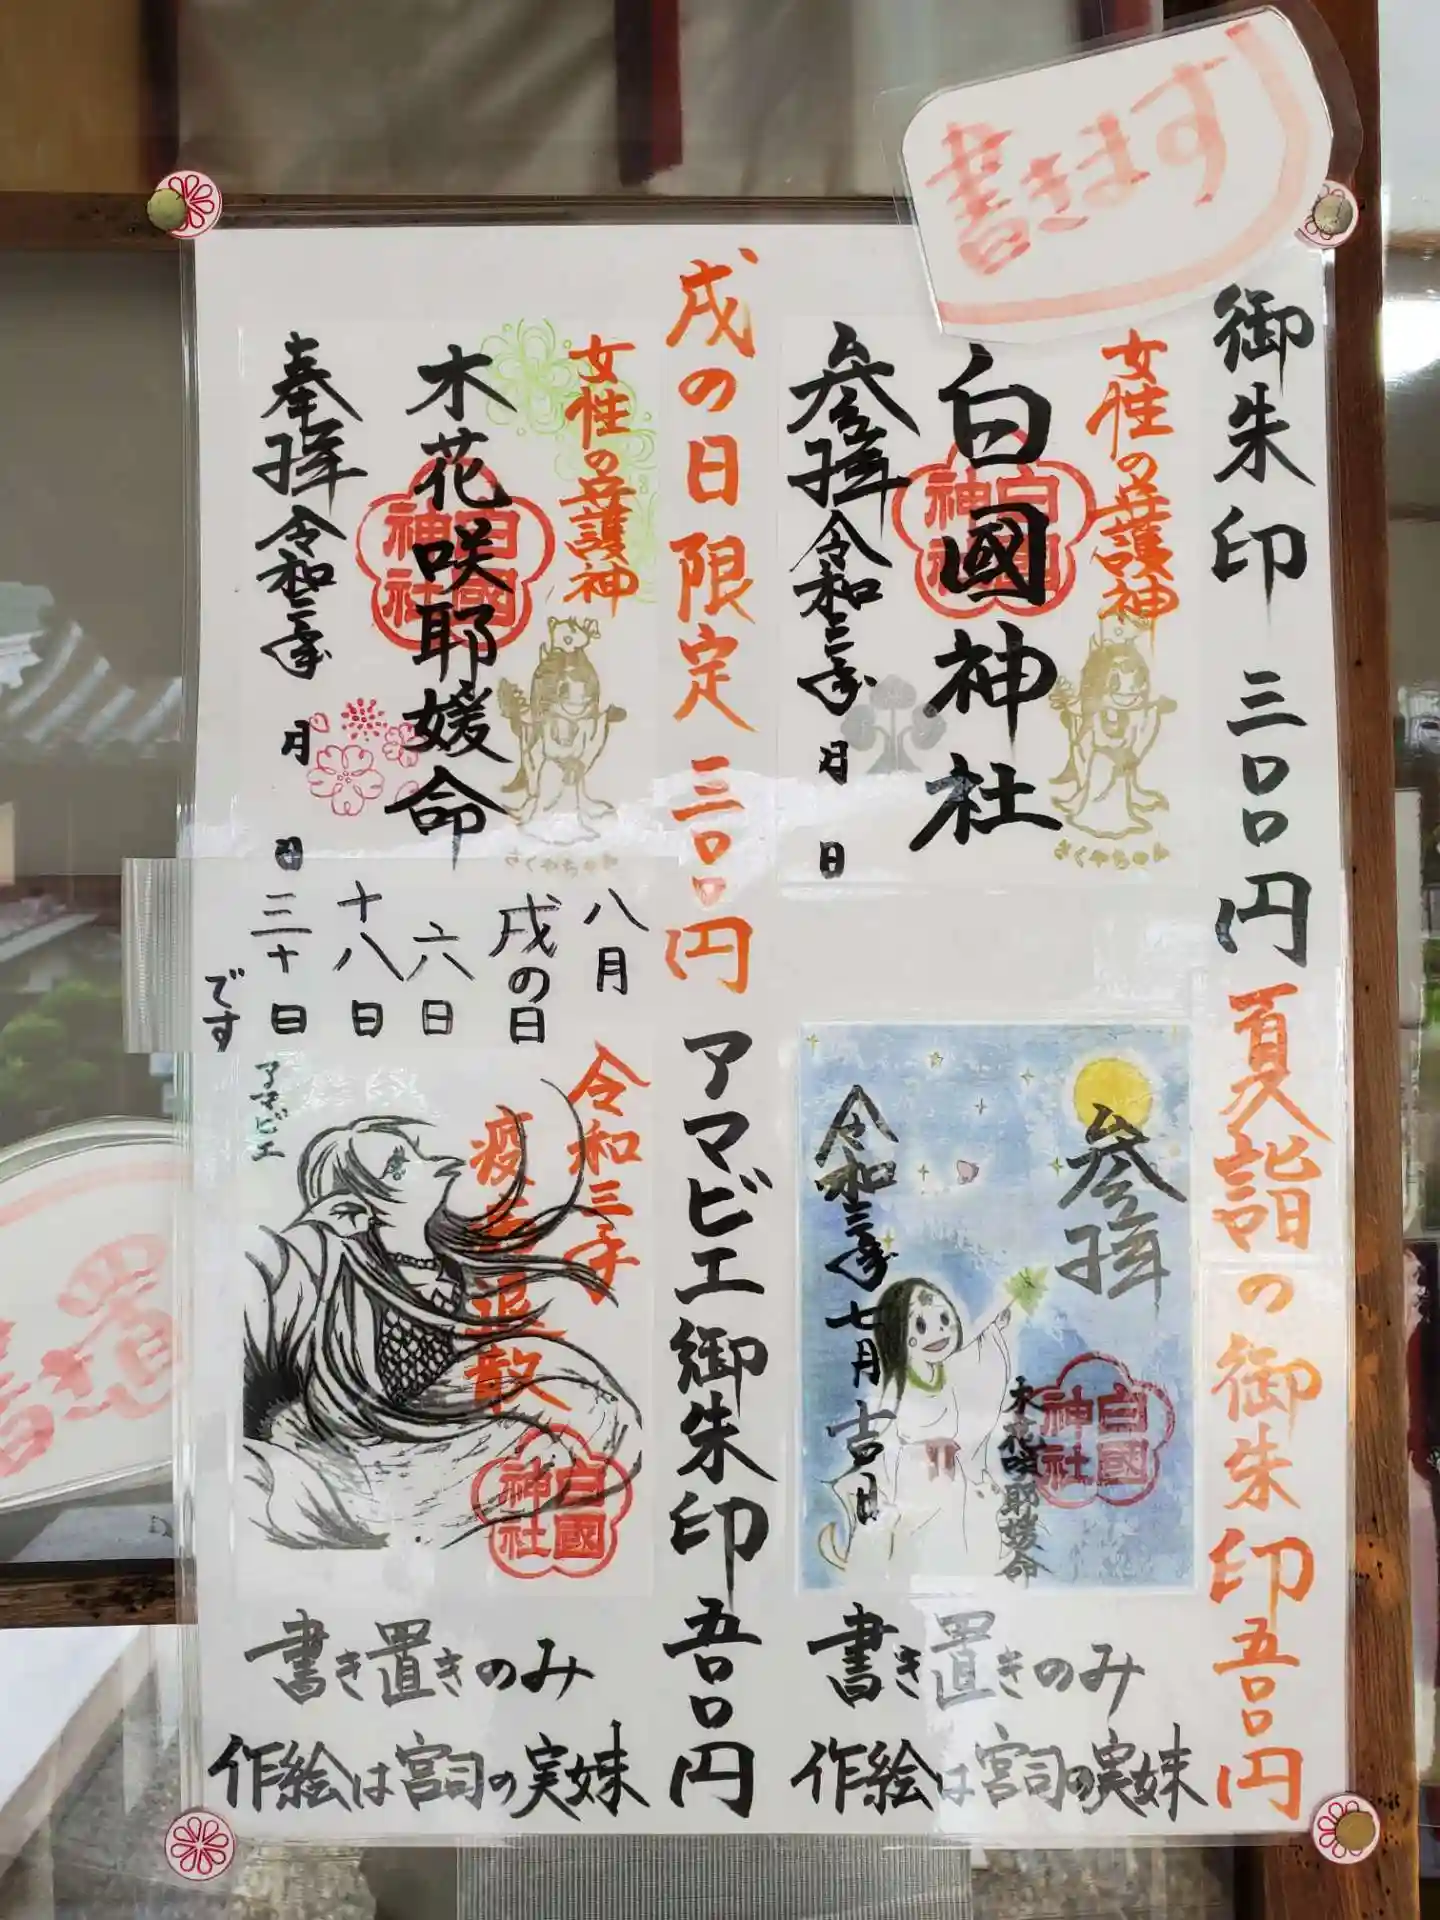 書きます
御朱印 三〇〇円
夏詣の御朱印 五〇〇円
女性の守護神
白國神社
参拝 令和三年 月 日
白國神社
さくやちゃん
参拝
木花咲耶媛命
白國神社
令和三年 七月 吉日
書き置きのみ
作絵は宮司の実妹
戌の日限定 三〇〇円
アマビエ御朱印 五〇〇円
女性の守護神
木花咲耶媛命
奉拝 令和三年 月 日
白國神社
さくやちゃん
八月
戌の日
六日
十八日
三十日
です
令和三年
疫病退散
アマビエ
白國神社
書き置きのみ
作絵は宮司の実妹
書き置